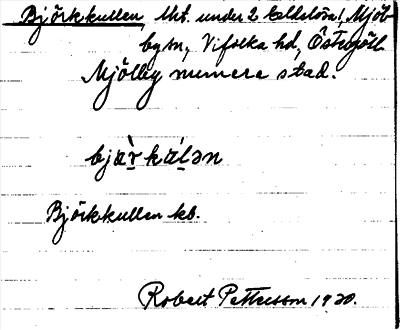 Björkkullen lht. under 2 Kaldslösa, Mjöl-
by sn, Vifolka hd, Östergötl.
Mjölby numera stad.
bjæ̀r̥kæ̀l̥ən
Björkkullen kb.
Robert Pettersson 1930.